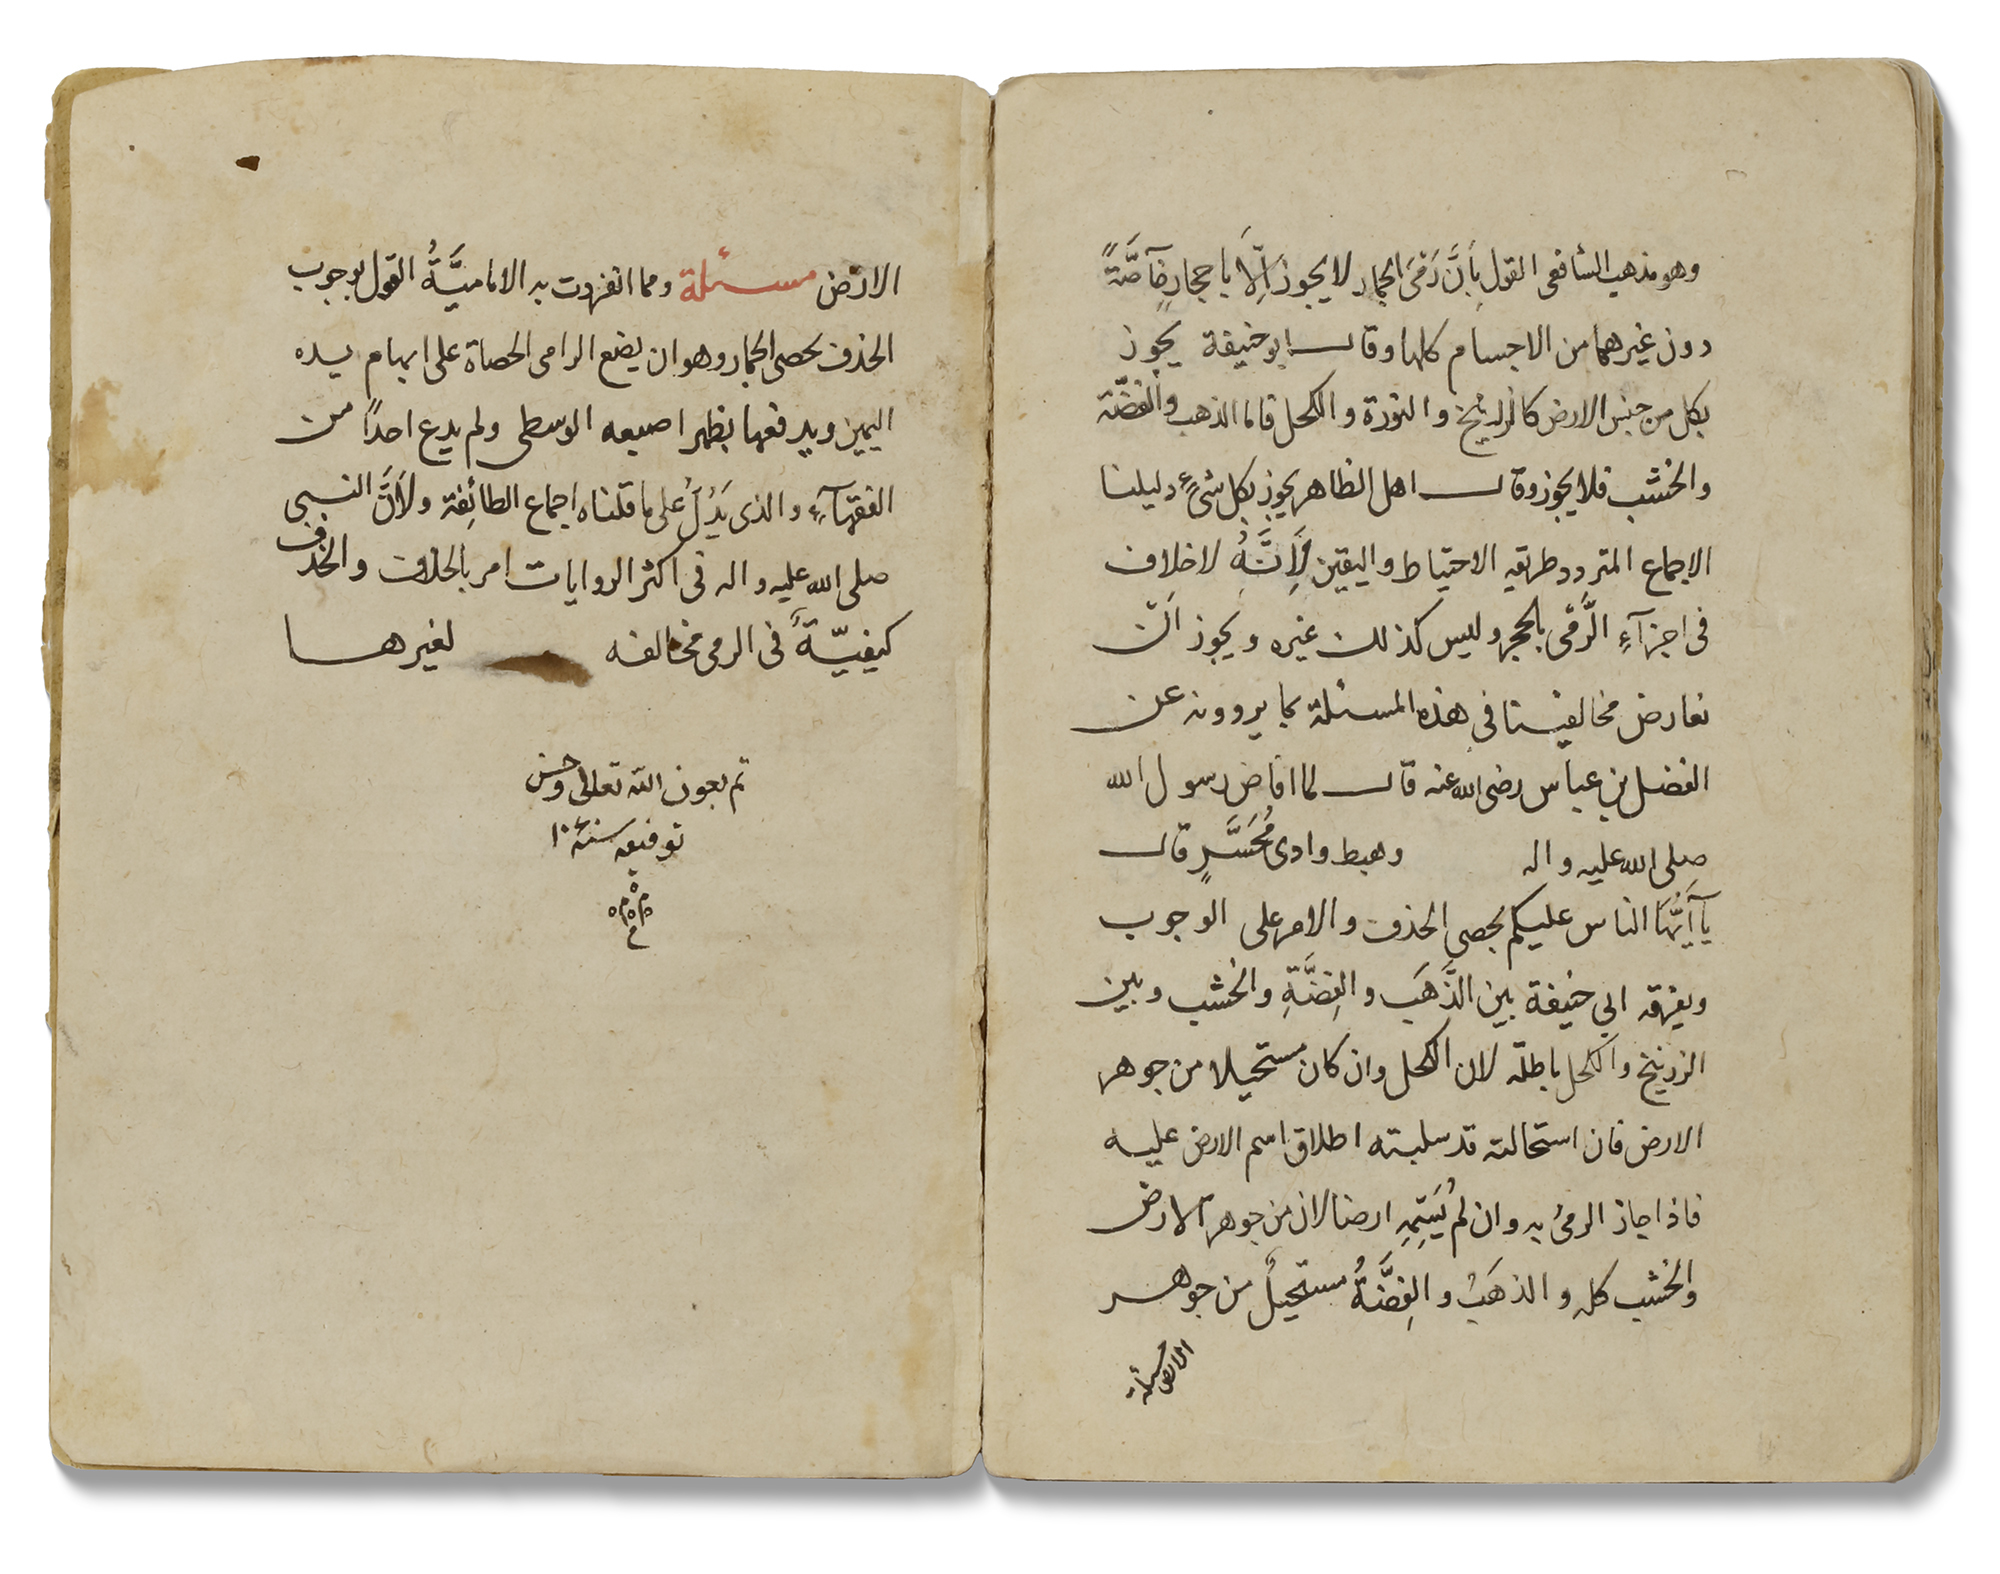 وهو مذهب الشافعى القول بِأَنَّ رَمْىَ الجمار لا يجوز اِلَّا باحجارٍ خآصَّةً
دون غيرهما من الاجسام كلها وقال ابو حنيفة يجوز
بكل من جنس الارض كالزرنيخ والنورة والكحل فاما الذهب والفضّة
والخشب فلا يجوز وقال اهل الظاهر يجوز بكل شىءٍ دليلنا
الاجماع المتردد وطريقه الاحتياط واليقين لِأَنَّهُ لا خلاف
فى اجزآءِ الرَّمْى بالحجر وليس كذلك غيره ويجوز اَن
نعارض مخالفينا فى هذه المسئلة بما يروونه عن
الفضل بن عباس رضى الله عنه قال لما افاض رسول الله
صلى الله عليه واله وهبط وادى مُحَسَّرٍ قال
يآ اَيُّهَا الناس عليكم بحصى الحذف والامر على الوجوب
وبفرقه ابى حنيفة بين الذَّهَب والفِضَّةِ والخشب وبين
الزرنيخ والكحل باطلة لان الكحل وان كان مستحيلا من جوهر
الارض فان استحالته قد سلبته اطلاق اسم الارض عليه
فاذا جاز الرمىُ به وان لم يُسَمِّهِ ارضا لان من جوهر الارض
والخشب كله والذهَبُ والفِضَّةُ مستحيلٌ من جوهر
الارض مسئلة
الارض مسئلة ومما انفردت به الاماميَّةُ القول بوجوب
الحذف بحصى الجمار وهو ان يضع الرامى الحصاة على ابهام يده
اليمين ويدفعها بظهر اصبعه الوسطى ولم يدع احدًا من
الفقهآءِ والذى يَدُلُّ على ما قلناه اجماع الطائِفة ولأَنَّ النبى
صلى الله عليه واله فى اكثر الروايات امر بالحذف والخذف
كيفيّةٌ فى الرمى مخالفه لغيرها
تم بعون الله تعالى وحسن
توفيقه سنة